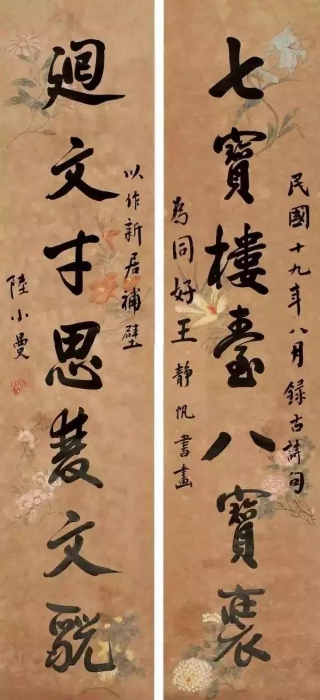 民國十九年八月錄古詩句
七寶樓臺八寶
為同好王靜帆書畫
以作新居補壁
廻文才思雙文貌
陸小曼